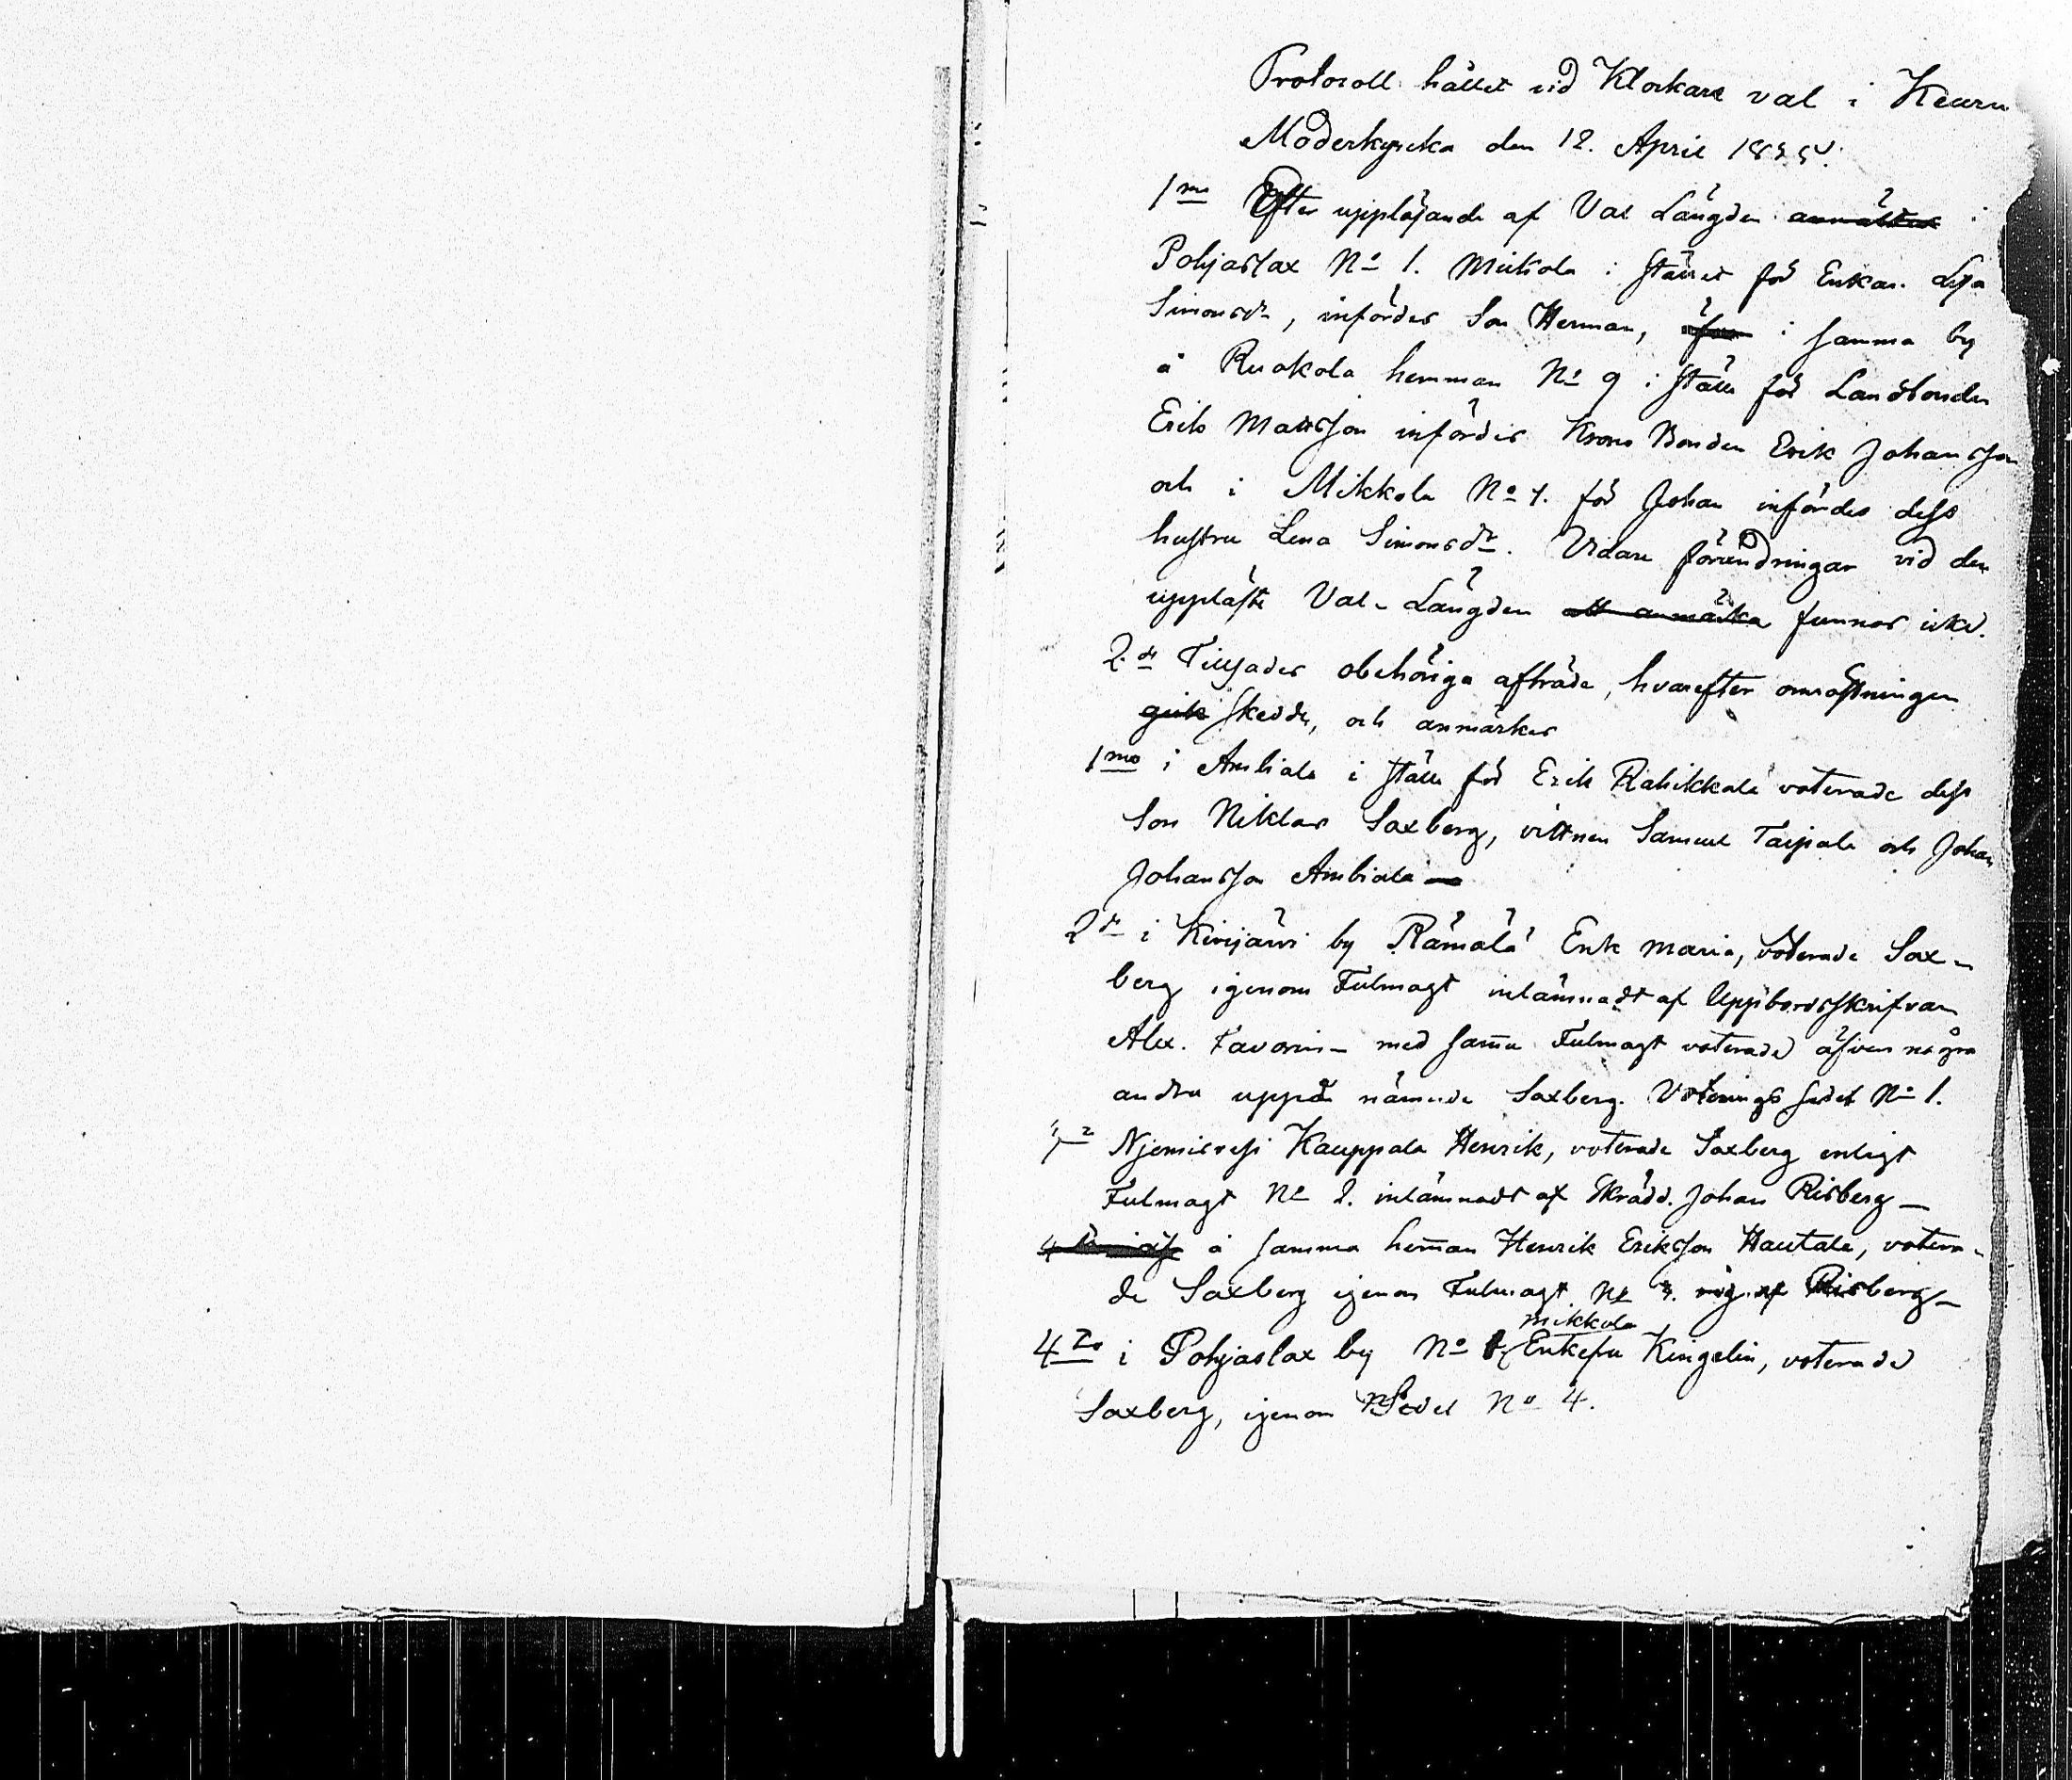 Protocoll hållet vid Klockare val i Keuru
Moderkyrcka den 12. April
1mo Efter uppläsande af Val Längden anmältes i
Pohjaslax No 1. Mikkola i stället för Enkan Lisa
Simonsdr, infördes Son Herman, i samma by
å Ruokola hemman No 9 i ställe för Landbonden
Erik Mattsson infördes Krono Bonden Erik Johansson
och i Mikkola No 1. för Johan infördes dess
hustru Lena Simonsdr. Vidare förändringar vid den
uppläste Val-Längden att anmärka funnos icke.
2do Tillsades obehöriga afträda, hvarefter omröstningen
gick skedde, och anmärkes
1mo i Ambiala i ställe för Erik Rahikkala voterade dess
Son Niklas Saxberg, vittnen Samuel Taipale och Johan
Johansson Ambiala
2do i Kivijärvi by Rämälä Enk Maria, voterade Sax-
berg igenom Fulmagt inlämnadt af Uppbördsskrifvaren
Alex. Favorin - med samma Fulmagt voterade äfven några
andra uppå nämnde Saxberg. Voterings sedel No 1.
Njemisvesi Kauppala Henrik, voterade Saxberg enligt
Fulmagt No 2. inlämnadt af Skrädd. Johan Risberg -
å samma heman Henrik Eriksson Hautala, votera-
de Saxberg igenom Fulmagt No 3. af Risberg -
Mikkola
4to i Pohjaslax by No 1 Enkefru Kingelin, voterade
Saxberg, igenom Sedel No 4.